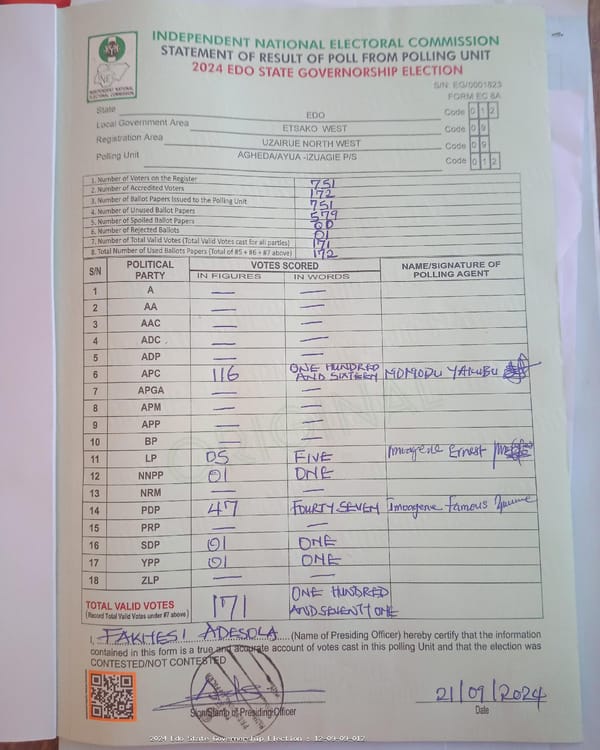 INDEPENDENT NATIONAL ELECTORAL COMMISSION
STATEMENT OF RESULT OF POLL FROM POLLING UNIT
2024 EDO STATE GOVERNORSHIP ELECTION
INDEPENDENT NATIONAL ELECTORAL COMMISSION
S/N: EG/0001823
FORM EC 8A
State EDO Code 0 1 2
Local Government Area ETSAKO WEST Code 0 9
Registration Area UZAIRUE NORTH WEST Code 0 9
Polling Unit AGHEDA/AYUA -IZUAGIE P/S Code 0 1 2
1. Number of Voters on the Register 751
2. Number of Accredited Voters 172
3. Number of Ballot Papers Issued to the Polling Unit 751
4. Number of Unused Ballot Papers 579
5. Number of Spoiled Ballot Papers 00
6. Number of Rejected Ballots 01
7. Number of Total Valid Votes (Total Valid Votes cast for all parties) 171
8. Total Number of Used Ballots Papers (Total of #5 + #6 + #7 above) 172
S/N POLITICAL PARTY VOTES SCORED NAME/SIGNATURE OF POLLING AGENT
IN FIGURES IN WORDS
1 A — —
2 AA — —
3 AAC — —
4 ADC — —
5 ADP — —
6 APC 116 ONE HUNDRED AND SIXTEEN MOMODU YAKUBU
7 APGA — —
8 APM — —
9 APP — —
10 BP — —
11 LP 05 FIVE Imoagene Ernest
12 NNPP 01 ONE
13 NRM — —
14 PDP 47 FOURTY SEVEN Imoagene Famous
15 PRP — —
16 SDP 01 ONE
17 YPP 01 ONE
18 ZLP — —
TOTAL VALID VOTES 171 ONE HUNDRED AND SEVENTY ONE
(Record Total Valid Votes under #7 above)
ORIGINAL
I, FAKHESI ADESOLA (Name of Presiding Officer) hereby certify that the information
contained in this form is a true and accurate account of votes cast in this polling Unit and that the election was
CONTESTED/NOT CONTESTED
21/09/2024
Sign/Stamp of Presiding Officer Date
2024 Edo State Governorship Election : 12-09-09-012